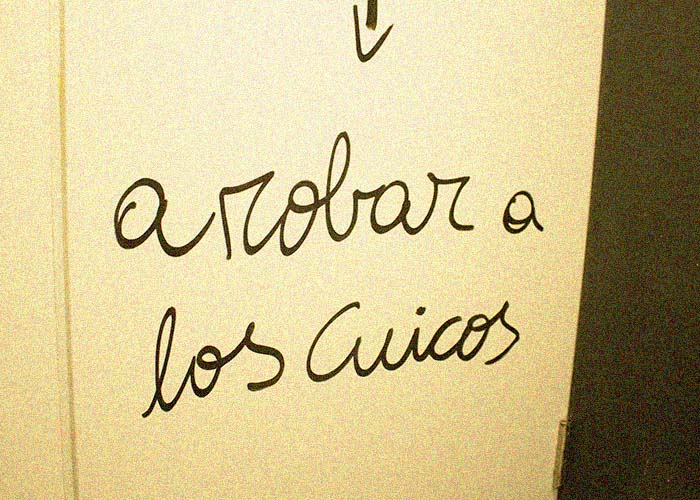 arobar a
los Cuicos